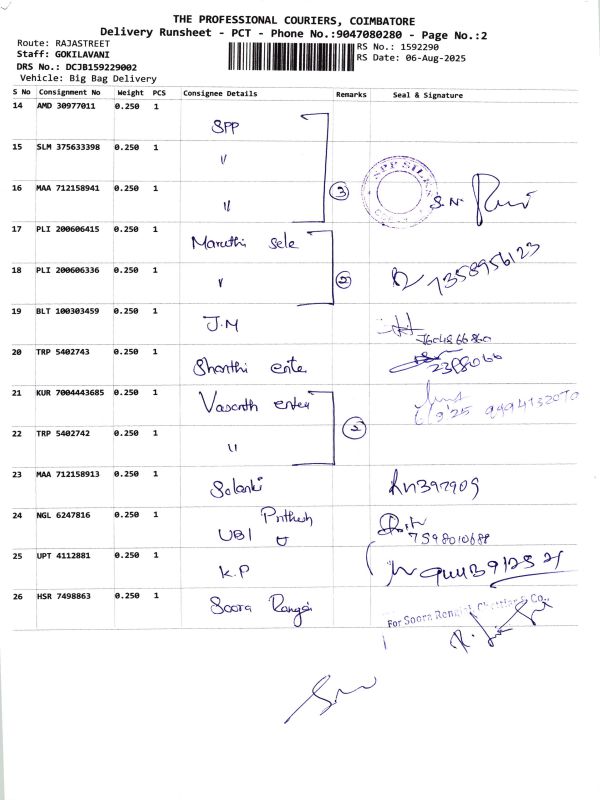 THE PROFESSIONAL COURIERS, COIMBATORE
Delivery Runsheet - PCT - Phone No.:9047080280 - Page No.:2
Route: RAJASTREET
Staff: GOKILAVANI
DRS No.: DCJB159229002
Vehicle: Big Bag Delivery
RS No.: 1592290
RS Date: 06-Aug-2025
S No Consignment No Weight PCS Consignee Details Remarks Seal & Signature
14 AMD 30977011 0.250 1 SPP
15 SLM 375633398 0.250 1 "
16 MAA 712158941 0.250 1 " 3 SPP SILKS S.N.
17 PLI 200606415 0.250 1 Maruthi sele
18 PLI 200606336 0.250 1 " 2 7358956123
19 BLT 100303459 0.250 1 J.M
20 TRP 5402743 0.250 1 Shanthi ente
21 KUR 7004443685 0.250 1 Vasanth enter
22 TRP 5402742 0.250 1 " 2
23 MAA 712158913 0.250 1 Solanki
24 NGL 6247816 0.250 1 UBI 7598010688
25 UPT 4112881 0.250 1 K.P
26 HSR 7498863 0.250 1 Soora Rangai For Soora Rengiah Chettiar & Co.,